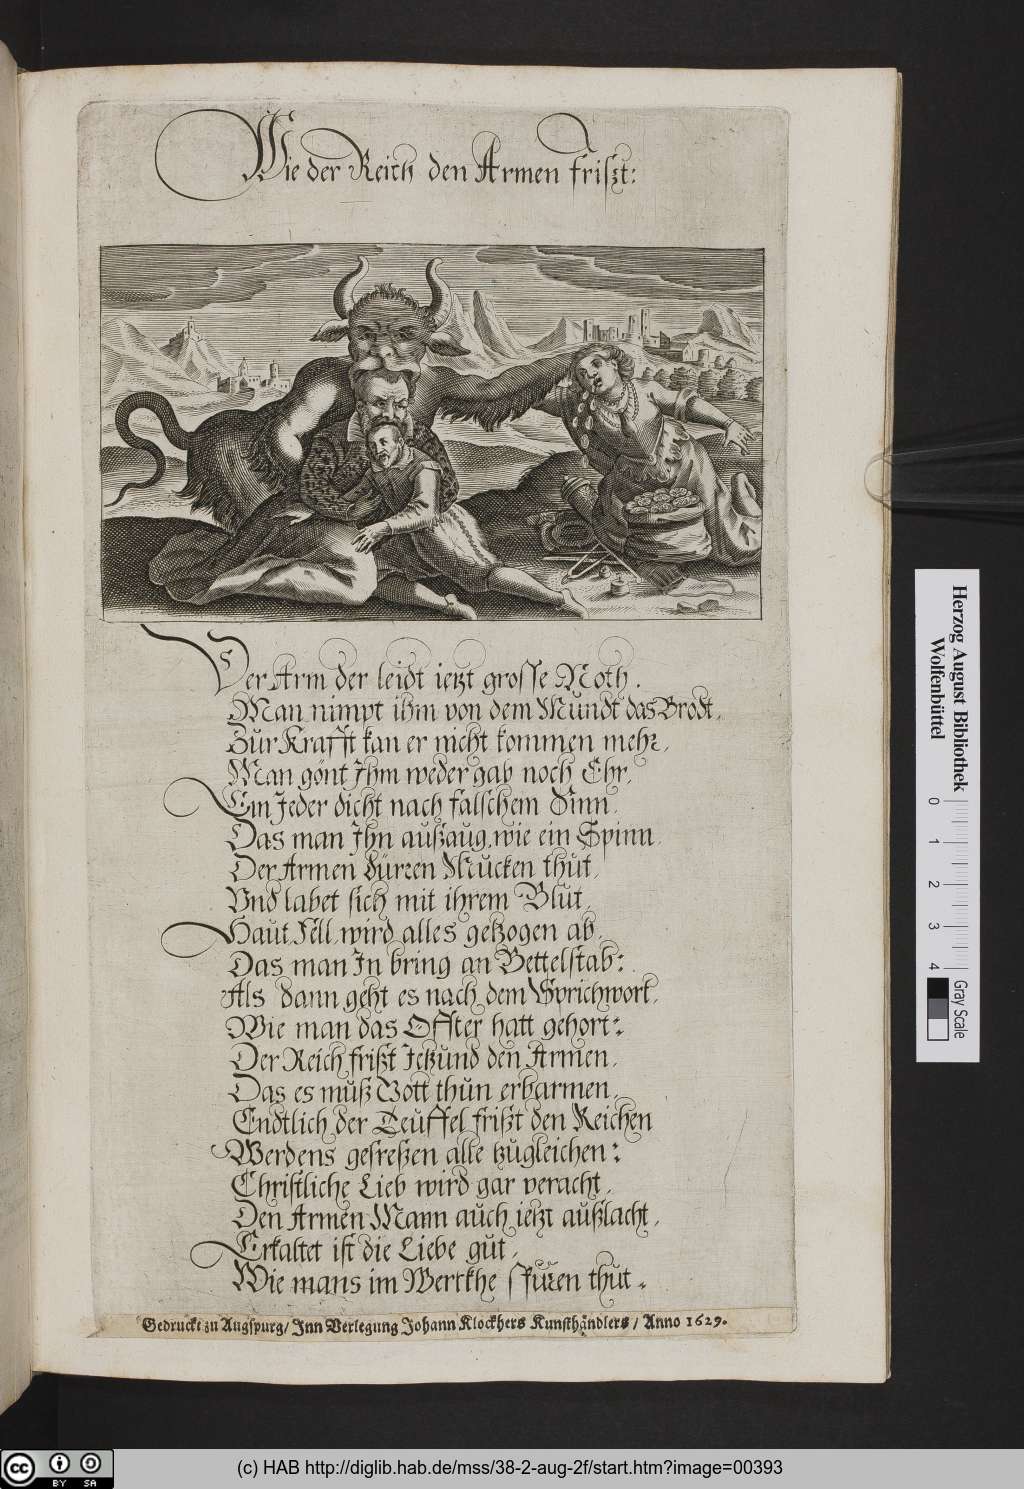 Wie der Reich den Armen frißt:
Der Arm der leidt ietzt grosse Noth.
Man nimpt ihm von dem Mundt das Brodt,
Zur Krafft kan er nicht kommen mehr,
Man gönt Ihm weder gab noch Ehr,
Ein Jeder dicht nach falschem Sinn,
Das man Ihn außzaug, wie ein Spinn
Der Armen dürren Mucken thut,
Vnd labet sich mit ihrem Blut,
Haut, Fell, wird alles getzogen ab,
Das man In bring an Bettelstab:
Als dann geht es nach dem Sprichwort,
Wie man das Offter hatt gehort:
Der Reich frißt Ietzund den Armen,
Das es muß Gott thun erbarmen,
Endtlich der Teuffel frißt den Reichen
Werdens gefreßen alle tzugleichen:
Christliche Lieb wird gar veracht,
Den Armen Mann auch ietzt außlacht,
Erkaltet ist die Liebe gut,
Wie mans im Werckhe spüren thut.
Gedruckt zu Augspurg / Inn Verlegung Johann Klockhers Kunsthändlers / Anno 1629.
Herzog August Bibliothek
Wolfenbüttel
0 1 2 3 4
Gray Scale
cc BY SA
(c) HAB http://diglib.hab.de/mss/38-2-aug-2f/start.htm?image=00393